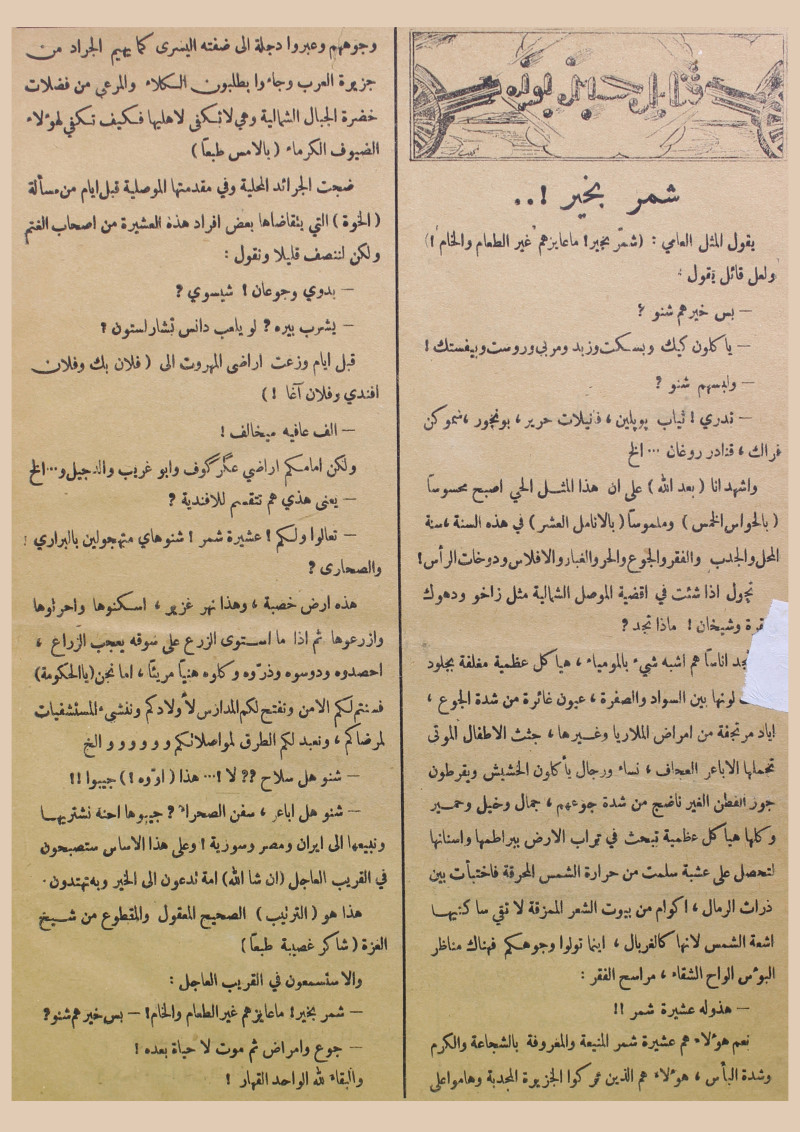 قنابل حسبز بوز
شمر بخير !..
يقول المثل العامي : (شمّر بخير! ماعايزهم غير الطعام والخام !)
ولعل قائل يقول :
— بس خيرهم شنو ؟
— ياكلون كيك وبسكت وزبد ومربى وروست وبيفستك !
— ولبسهم شنو ؟
— تدري ! ثياب پوپلين ، فانيلات حرير ، بونجور ، سموكن
فراك ، قنادر روغان ... الخ
واشهد انا (بعد الله) على ان هذا المثل الحي اصبح محسوساً
(بالحواس الخمس) وملموساً (بالانامل العشر) في هذه السنة ، سنة
المحل والجدب والفقر والجوع والحر والغبار والافلاس ودوخات الرأس !
تجول اذا شئت في اقضية الموصل الشمالية مثل زاخو ودهوك
وشيخان ! ماذا تجد ؟
اناساً هم اشبه شيء بالمومياء ، هياكل عظمية مغلفة بجلود
لونها بين السواد والصفرة ، عيون غائرة من شدة الجوع ،
اياد مرتجفة من امراض الملاريا وغيرها ، جثث الاطفال الموتى
تحملها الاباعر العجاف ، نساء ورجال يأكلون الحشيش ويقرطون
جوز القطن الغير ناضج من شدة جوعهم ، جمال وخيل وحمير
وكلها هياكل عظمية تبحث في تراب الارض ببراطمها واسنانها
لتحصل على عشبة سلمت من حرارة الشمس المحرقة فاختبأت بين
ذرات الرمال ، اكوام من بيوت الشعر الممزقة لا تقي ساكنيها
اشعة الشمس لانها كالغربال ، اينما تولوا وجوهكم فهناك مناظر
البؤس الواح الشقاء ، مراسح الفقر :
— هذوله عشيرة شمر !!
نعم هؤلاء هم عشيرة شمر المنيعة والمعروفة بالشجاعة والكرم
وشدة البأس ، هؤلاء هم الذين تركوا الجزيرة المجدبة وهاموا على
وجوههم وعبروا دجلة الى ضفته اليسرى كما يهيم الجراد من
جزيرة العرب وجاءوا يطلبون الكلاء والمرعى من فضلات
خضرة الجبال الشمالية وهي لاتكفى لاهليها فكيف تكفي لهؤلاء
الضيوف الكرماء (بالامس طبعاً)
ضجت الجرائد المحلية وفي مقدمتها الموصلية قبل ايام من مسألة
(الخوة) التي يتقاضاها بعض افراد هذه العشيرة من اصحاب الغنم
ولكن لننصف قليلا ونقول :
— بدوي وجوعان ! شيسوي ؟
— يشرب بيره ؟ لو يلعب دانس تشارلستون ؟
قبل ايام وزعت اراضى المهروت الى ( فلان بك وفلان
افندي وفلان آغا ! )
— الف عافيه ميخالف !
ولكن امامكم اراضي عگرگوف وابو غريب والدجيل و...الخ
— يعنى هذي هم تتقسم للافندية ؟
— تعالوا ولكم ! عشيرة شمر ! شنو هاي متهجولين بالبراري :
والصحارى ؟
هذه ارض خصبة ، وهذا نهر غزير ، اسكنوها واحرثوها
وازرعوها ثم اذا ما استوى الزرع على سوقه يعجب الزراع ،
احصدوه ودوسوه وذرّوه وكلوه هنيئاً مريئاً ، اما نحن (ياالحكومة)
فسنتم لكم الامن ونفتح لكم المدارس لأولادكم وننشىء المستشفيات
لمرضاكم ، ونعبد لكم الطرق لمواصلاتكم و و و و و الخ
— شنو هل سلاح ؟؟ لا !... هذا (اوّوه !) جيبوا !!
— شنو هل اباعر ، سفن الصحراء ؟ جيبوها احنة نشتريها
ونبيعها الى ايران ومصر وسورية ! وعلى هذا الاساس ستصبحون
في القريب العاجل (ان شا الله) امة تدعون الى الخير وبه تهتدون .
هذا هو (الترتيب) الصحيح المعقول والمقطوع من شيخ
الغزة (شاكر غصيبة طبعاً)
والا ستسمعون في القريب العاجل :
— شمر بخير! ماعايزهم غير الطعام والخام! — بس خيرهم شنو؟
— جوع وامراض ثم موت لا حياة بعده !
والبقاء لله الواحد القهار !